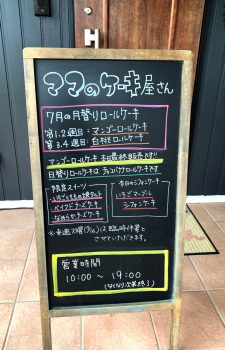 ママのケーキ屋さん
7月の月替りロールケーキ
第1.2週目:マンゴーロールケーキ
第3.4週目:白桃ロールケーキ
マンゴーロールケーキ 本日最終販売です!!
日替りロールケーキは チョコバナナロールケーキです
ベイクドチーズケーキ
なめらかチーズケーキ
本日のシフォンケーキ
いちごマーブル
シフォンケーキ
臨時休業と
させていただきます。
営業時間
10:00 ~ 19:00
(なくなり次第終了)